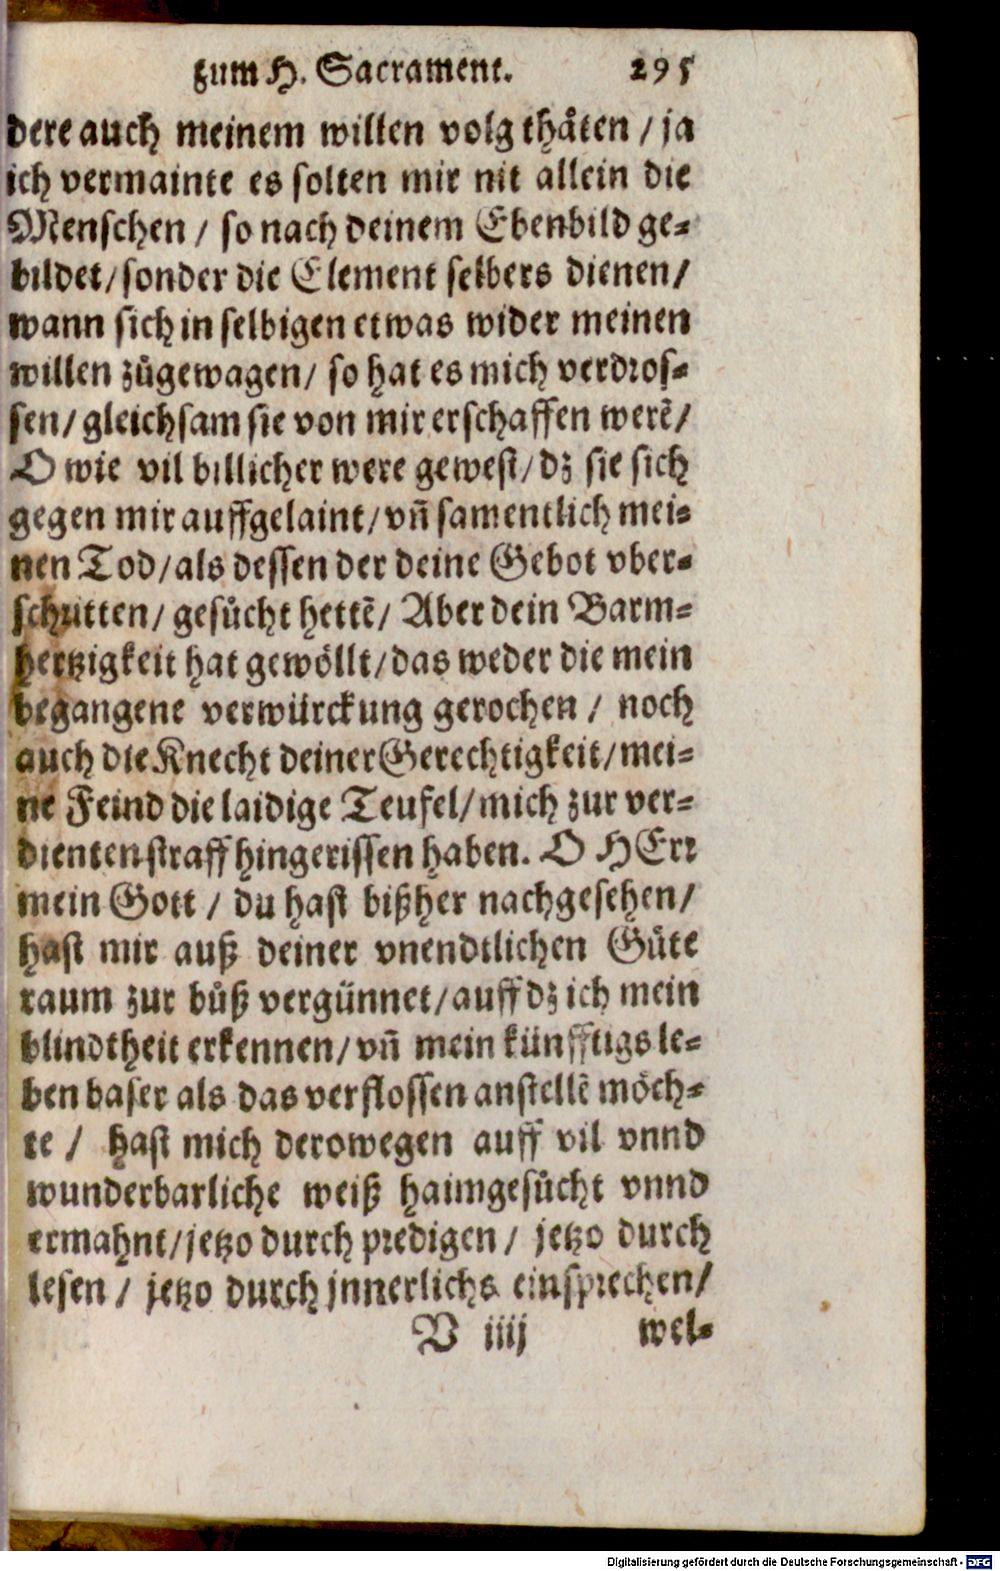 zum H. Sacrament. 295
dere auch meinem willen volg thåten / ja
ich vermainte es solten mir nit allein die
Menschen / so nach deinem Ebenbild ge-
bildet / sonder die Element selbers dienen /
wann sich in selbigen etwas wider meinen
willen zůgewagen / so hat es mich verdros-
sen / gleichsam sie von mir erschaffen werẽ /
O wie vil billicher were gewest / dz sie sich
gegen mir auffgelaint / vñ samentlich mei-
nen Tod / als dessen der deine Gebot vber-
schritten / gesůcht hettẽ / Aber dein Barm-
hertzigkeit hat gewöllt / das weder die mein
begangene verwürckung gerochen / noch
auch die Knecht deiner Gerechtigkeit / mei-
ne Feind die laidige Teufel / mich zur ver-
dienten straff hingerissen haben. O HErr
mein Gott / du hast bißher nachgesehen /
hast mir auß deiner vnendtlichen Gůte
raum zur bůß vergünnet / auff dz ich mein
blindtheit erkennen / vñ mein künfftigs le-
ben baser als das verflossen anstellẽ möch-
te / hast mich derowegen auff vil vnnd
wunderbarliche weiß haimgesůcht vnnd
ermahnt / jetzo durch predigen / jetzo durch
lesen / jetzo durch jnnerlichs einsprechen /
V iiij wel-
Digitalisierung gefördert durch die Deutsche Forschungsgemeinschaft - DFG